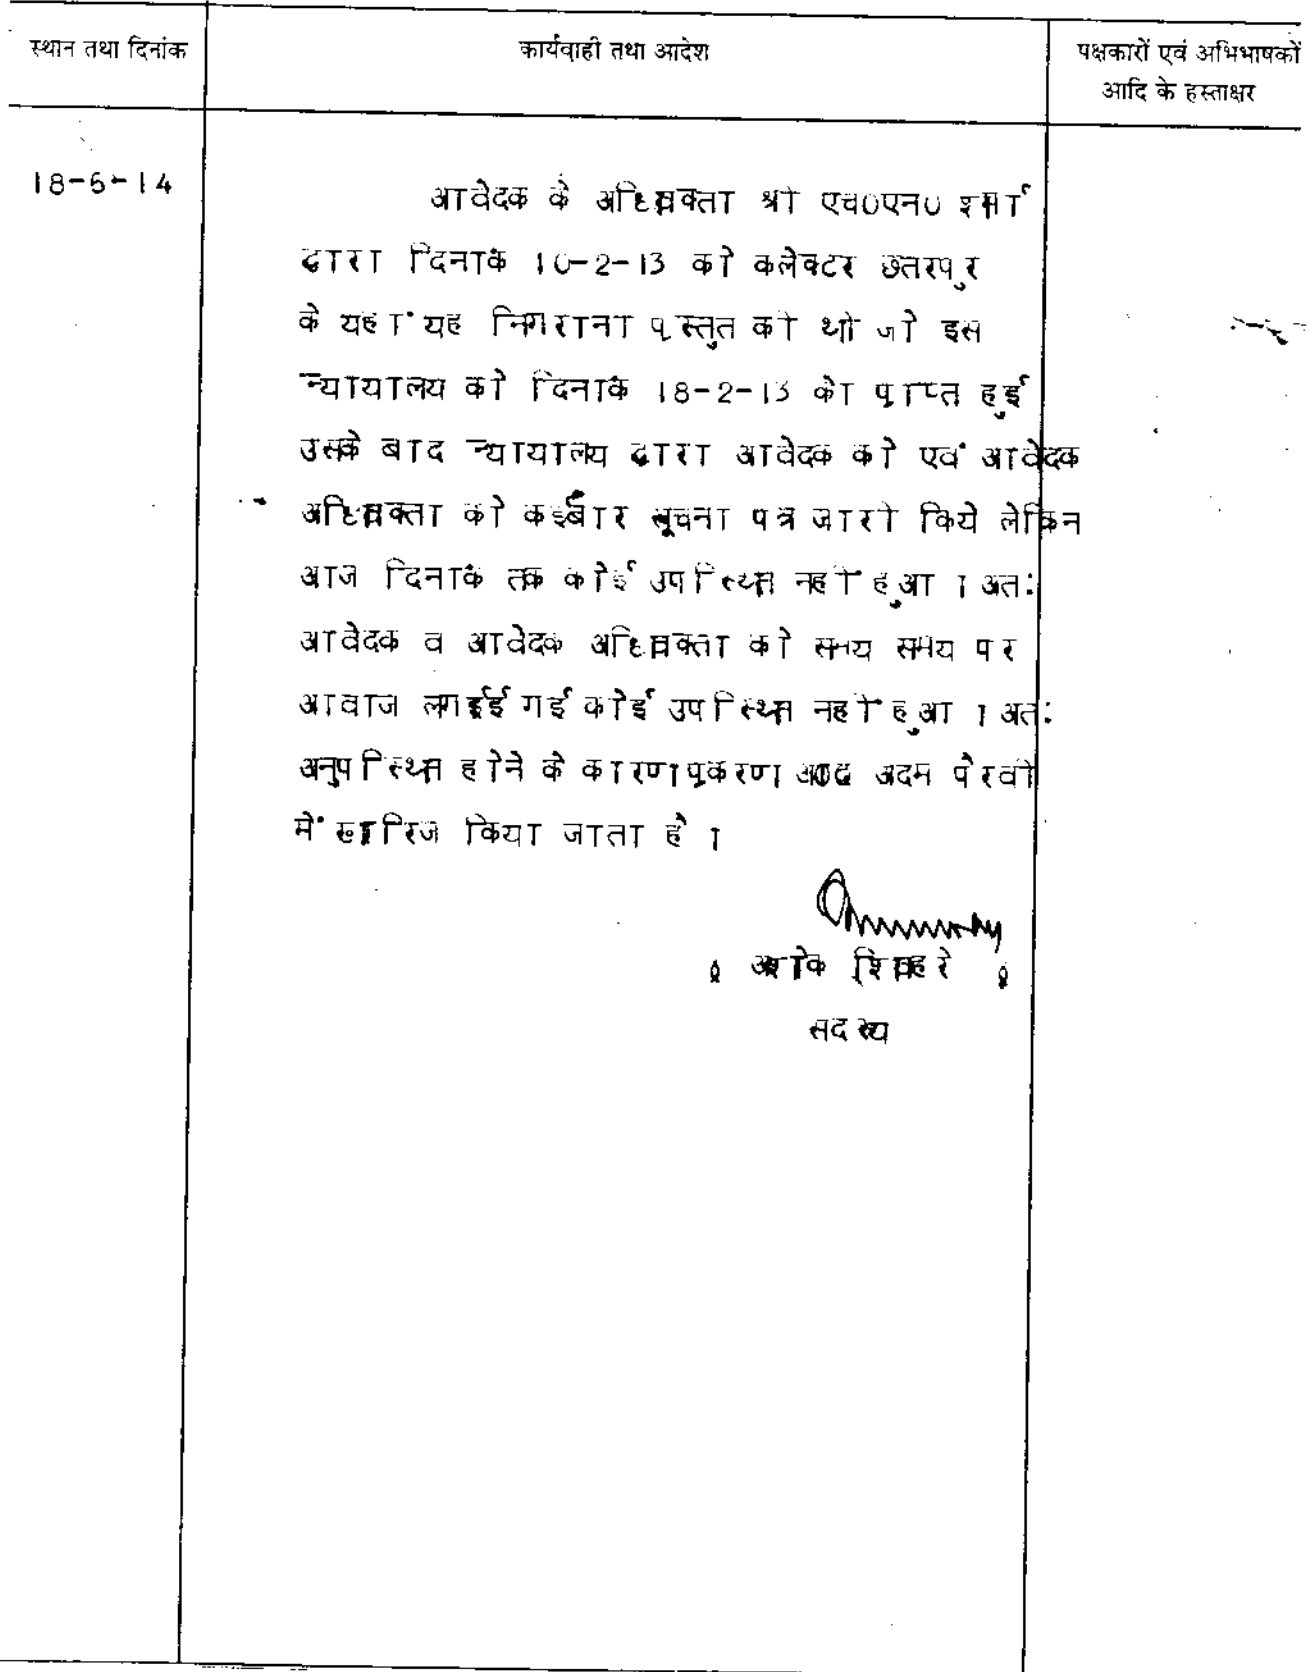 स्थान तथा दिनांक
कार्यवाही तथा आदेश
पक्षकारों एवं अभिभाषकों
आदि के हस्ताक्षर
18-6-14
आवेदक के अधिवक्ता श्री एच0एन0 शर्मा
द्वारा दिनांक 10-2-13 को कलेक्टर छतरपुर
के यहां यह निगरानी प्रस्तुत की थी जो इस
न्यायालय को दिनांक 18-2-13 को प्राप्त हुई
उसके बाद न्यायालय द्वारा आवेदक को एवं आवेदक
अधिवक्ता को कईबार सूचना पत्र जारी किये लेकिन
आज दिनांक तक कोई उपस्थित नहीं हुआ । अतः
आवेदक व आवेदक अधिवक्ता को समय समय पर
आवाज लगाई गई कोई उपस्थित नहीं हुआ । अतः
अनुपस्थित होने के कारण प्रकरण अदम पैरवी
में खारिज किया जाता है ।
अशोक शिवहरे
सदस्य